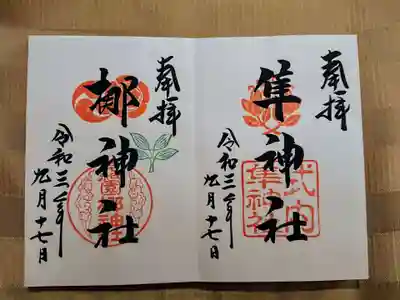 奉拝
隼神社
式内
隼神社
令和三年
九月十七日
奉拝
梛神社
令和三年
九月十七日